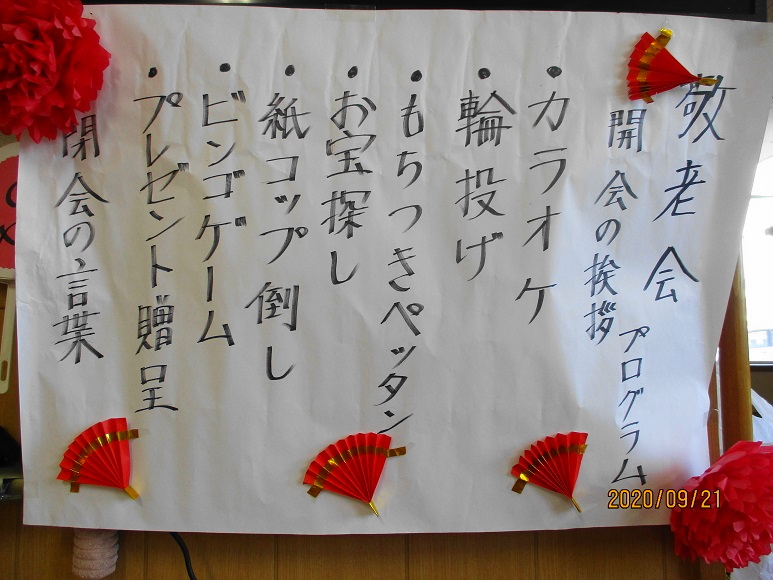 敬老会 プログラム
開会の挨拶
・カラオケ
・輪投げ
・もちつきペッタン
・お宝探し
・紙コップ倒し
・ビンゴゲーム
・プレゼント贈呈
閉会の言葉
2020/09/21